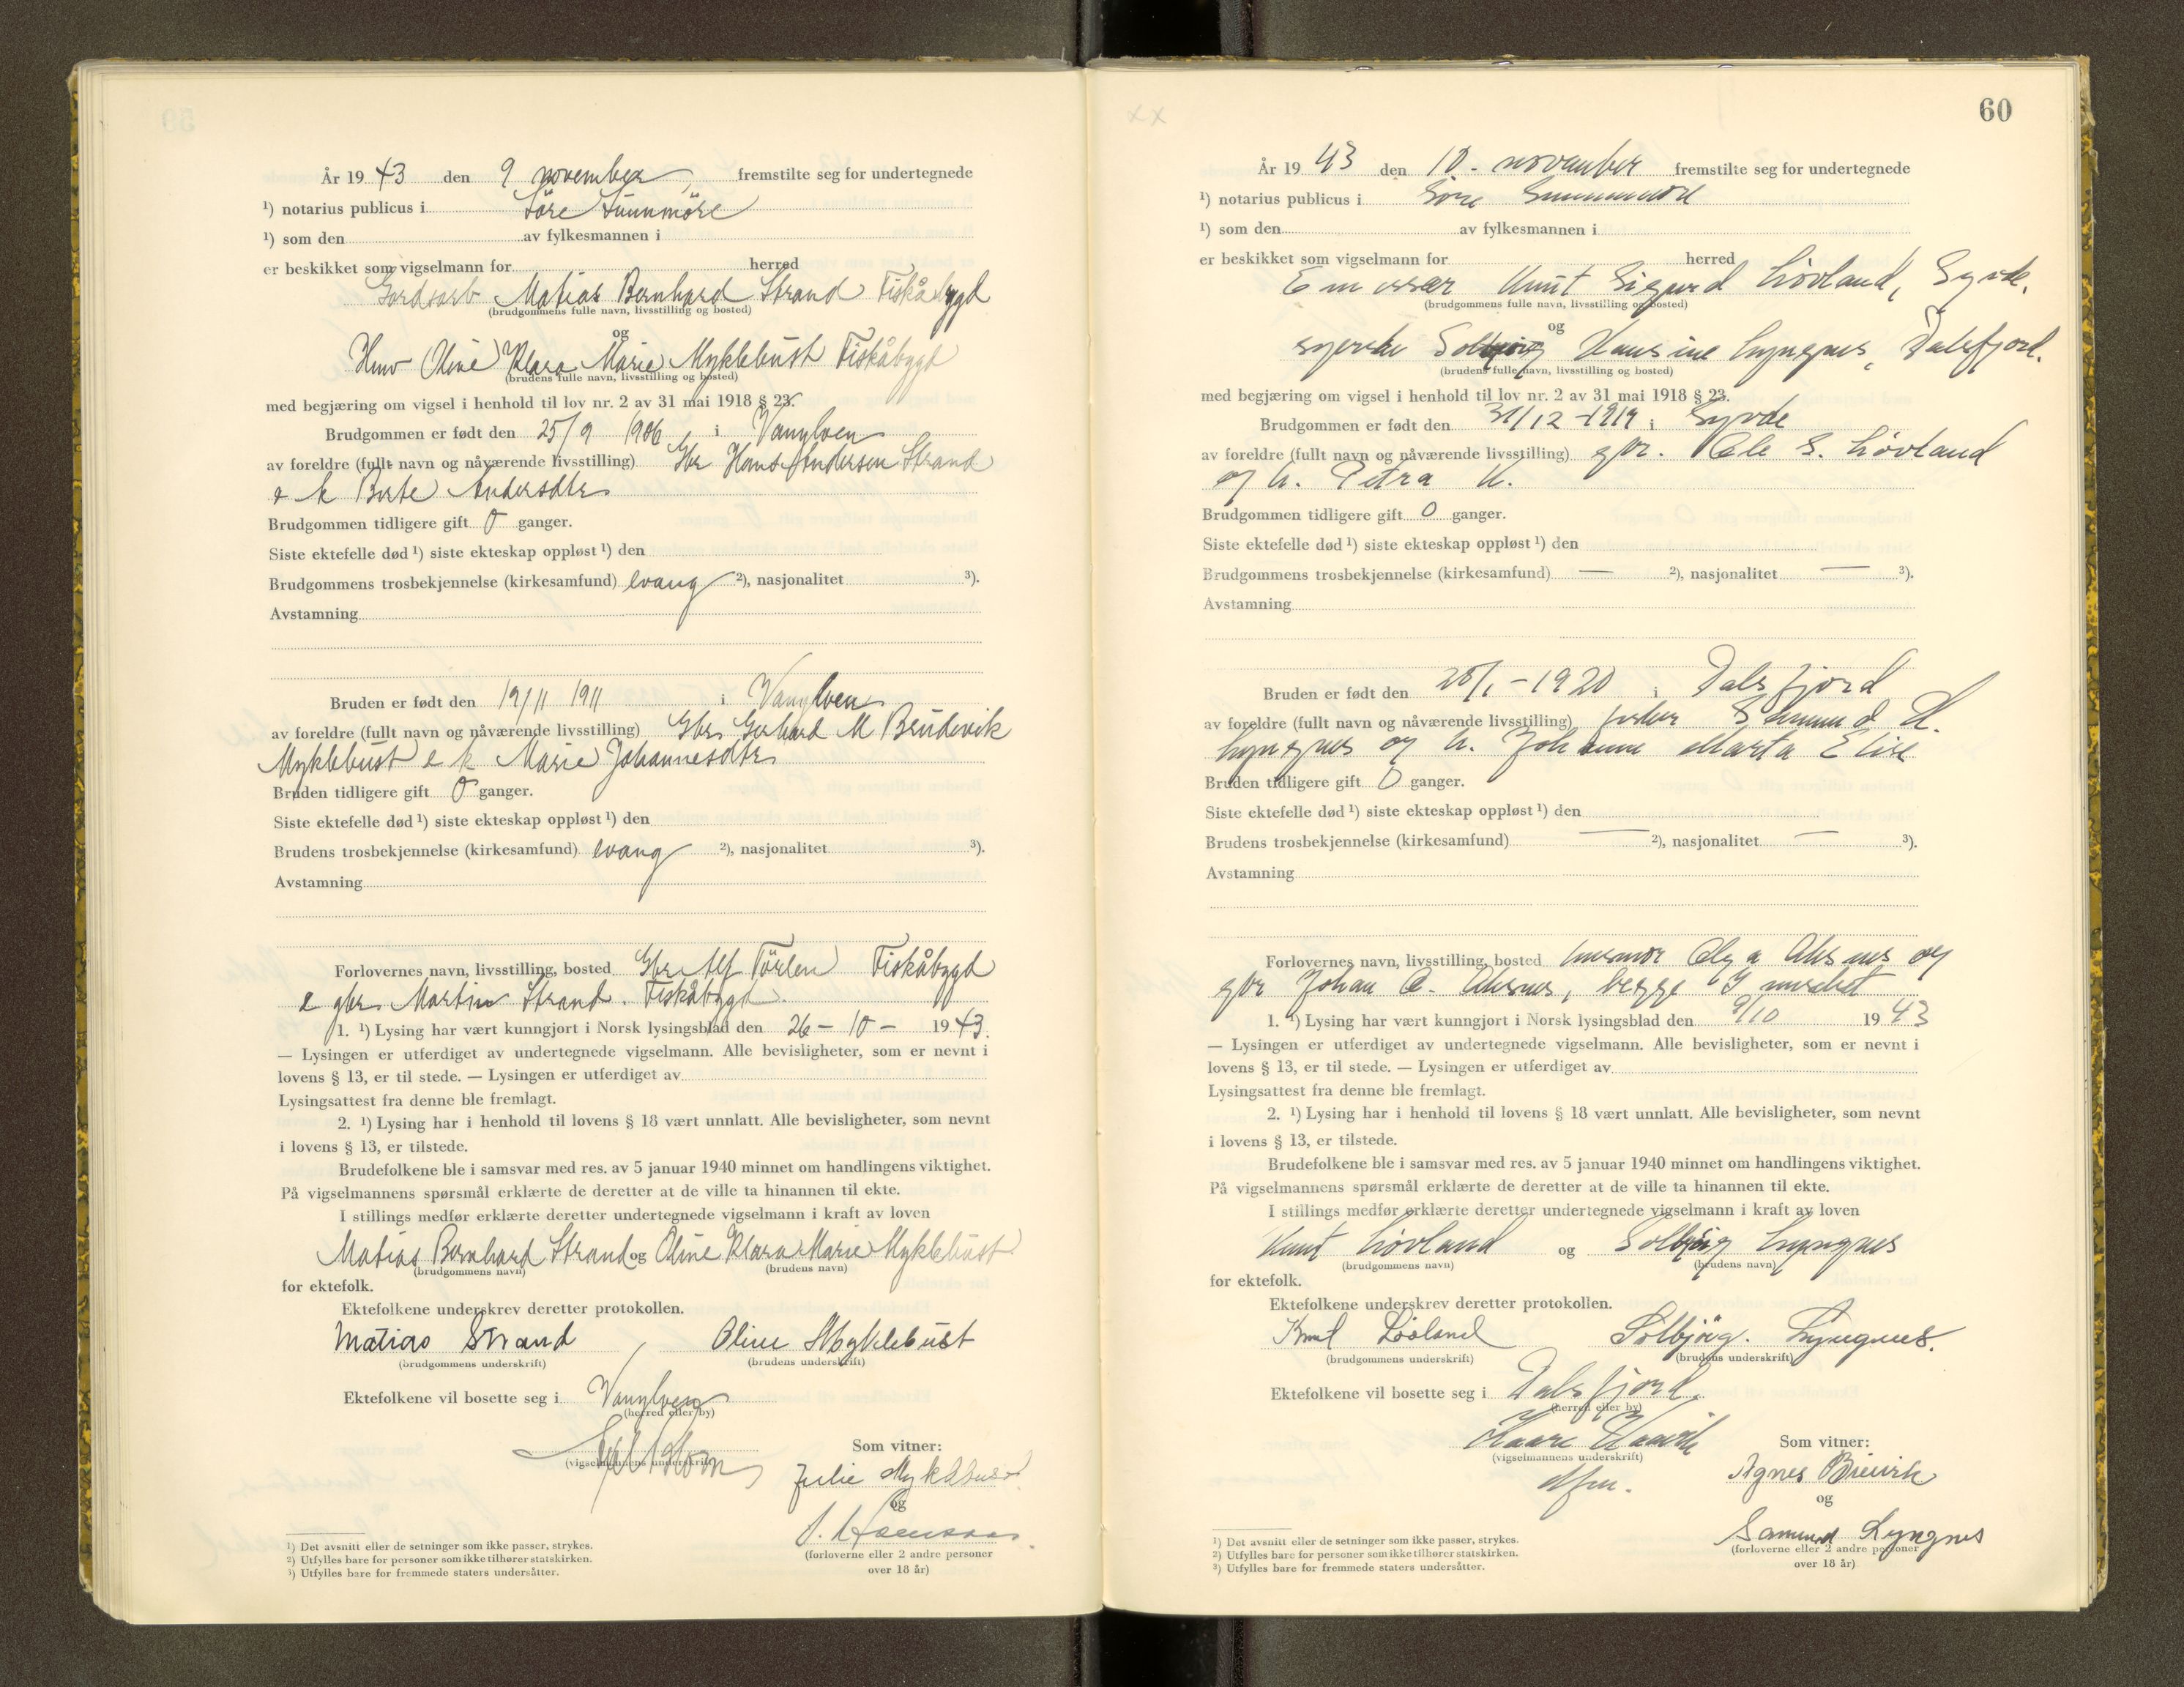 År 19 43 den 9 november, fremstilte seg for undertegnede
¹) notarius publicus i Söre Sunnmöre
¹) som den av fylkesmannen i
er beskikket som vigselmann for herred
Gardsarb Matias Bernhard Strand Fiskåbygd
(brudgommens fulle navn, livsstilling og bosted)
og
Husv Oline Klara Marie Myklebust Fiskåbygd
(brudens fulle navn, livsstilling og bosted)
med begjæring om vigsel i henhold til lov nr. 2 av 31 mai 1918 § 23.
Brudgommen er født den 25/9 1906 i Vanylven
av foreldre (fullt navn og nåværende livsstilling) Gbr Hans Andersen Strand
e k Berte Andersdtr
Brudgommen tidligere gift 0 ganger.
Siste ektefelle død ¹) siste ekteskap oppløst ¹) den
Brudgommens trosbekjennelse (kirkesamfund) evang ²), nasjonalitet ³).
Avstamning
Bruden er født den 19/11 1911 i Vanylven
av foreldre (fullt navn og nåværende livsstilling) Gbr Gerhard M Brudevik
Myklebust e k Marie Johannesdtr
Bruden tidligere gift 0 ganger.
Siste ektefelle død ¹) siste ekteskap oppløst ¹) den
Brudens trosbekjennelse (kirkesamfund) evang ²), nasjonalitet ³).
Avstamning
Forlovernes navn, livsstilling, bosted Gbr Alf Fiskåbygd
e gbr Martin Strand. Fiskåbygd.
1. ¹) Lysing har vært kunngjort i Norsk lysingsblad den 26 - 10 - 19 43.
— Lysingen er utferdiget av undertegnede vigselmann. Alle bevisligheter, som er nevnt i
lovens § 13, er til stede. — Lysingen er utferdiget av
Lysingsattest fra denne ble fremlagt.
2. ¹) Lysing har i henhold til lovens § 18 vært unnlatt. Alle bevisligheter, som nevnt
i lovens § 13, er tilstede.
Brudefolkene ble i samsvar med res. av 5 januar 1940 minnet om handlingens viktighet.
På vigselmannens spørsmål erklærte de deretter at de ville ta hinannen til ekte.
I stillings medfør erklærte deretter undertegnede vigselmann i kraft av loven
Matias Bernhard Strand og Oline Klara Marie Myklebust
(brudgommens navn) (brudens navn)
for ektefolk.
Ektefolkene underskrev deretter protokollen.
Matias Strand Oline Myklebust
(brudgommens underskrift) (brudens underskrift)
Ektefolkene vil bosette seg i Vanylven
(herred eller by)
Som vitner:
(vigselmannens underskrift)
Julie Myklebust
og
(forloverne eller 2 andre personer
over 18 år)
¹) Det avsnitt eller de setninger som ikke passer, strykes.
²) Utfylles bare for personer som ikke tilhører statskirken.
³) Utfylles bare for fremmede staters undersåtter.
xx
60
År 19 43 den 10. november fremstilte seg for undertegnede
¹) notarius publicus i Söre Sunnmöre
¹) som den av fylkesmannen i
er beskikket som vigselmann for herred
Knut Sigurd Lövland, Syvde.
(brudgommens fulle navn, livsstilling og bosted)
og
syerske Solbjörg Hansine Lyngnes, Dalsfjord.
(brudens fulle navn, livsstilling og bosted)
med begjæring om vigsel i henhold til lov nr. 2 av 31 mai 1918 § 23.
Brudgommen er født den 31/12 - 1919 i Syvde
av foreldre (fullt navn og nåværende livsstilling) gbr. Ole S. Lövland
og h. Petra K.
Brudgommen tidligere gift 0 ganger.
Siste ektefelle død ¹) siste ekteskap oppløst ¹) den
Brudgommens trosbekjennelse (kirkesamfund) — ²), nasjonalitet — ³).
Avstamning
Bruden er født den /1 - 1920 i Dalsfjord
av foreldre (fullt navn og nåværende livsstilling) fisker H.
Lyngnes og h. Johanne Marta Elise
Bruden tidligere gift 0 ganger.
Siste ektefelle død ¹) siste ekteskap oppløst ¹) den
Brudens trosbekjennelse (kirkesamfund) — ²), nasjonalitet — ³).
Avstamning
Forlovernes navn, livsstilling, bosted husmor Olga Aksnes og
gbr Johan Aksnes, begge
1. ¹) Lysing har vært kunngjort i Norsk lysingsblad den 9/10 19 43
— Lysingen er utferdiget av undertegnede vigselmann. Alle bevisligheter, som er nevnt i
lovens § 13, er til stede. — Lysingen er utferdiget av
Lysingsattest fra denne ble fremlagt.
2. ¹) Lysing har i henhold til lovens § 18 vært unnlatt. Alle bevisligheter, som nevnt
i lovens § 13, er tilstede.
Brudefolkene ble i samsvar med res. av 5 januar 1940 minnet om handlingens viktighet.
På vigselmannens spørsmål erklærte de deretter at de ville ta hinannen til ekte.
I stillings medfør erklærte deretter undertegnede vigselmann i kraft av loven
Knut Lövland og Solbjörg Lyngnes
(brudgommens navn) (brudens navn)
for ektefolk.
Ektefolkene underskrev deretter protokollen.
Knut Lövland Solbjörg. Lyngnes.
(brudgommens underskrift) (brudens underskrift)
Ektefolkene vil bosette seg i Dalsfjord.
(herred eller by)
Som vitner:
(vigselmannens underskrift)
Agnes Breivik
og
Samund Lyngnes
(forloverne eller 2 andre personer
over 18 år)
¹) Det avsnitt eller de setninger som ikke passer, strykes.
²) Utfylles bare for personer som ikke tilhører statskirken.
³) Utfylles bare for fremmede staters undersåtter.